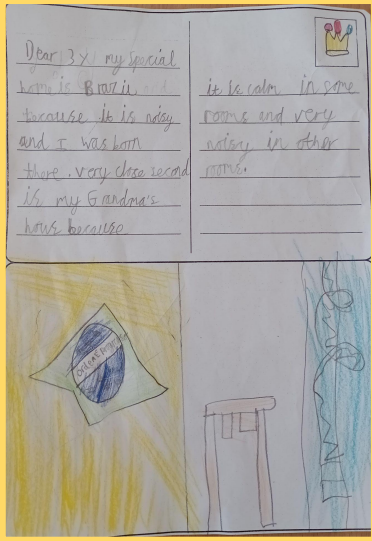 Dear 3Y my special
home is Brazil
because it is noisy
and I was born
there. very close second
is my Grandma's
hows because
it is calm in some
rooms and very
noisy in other
rooms.